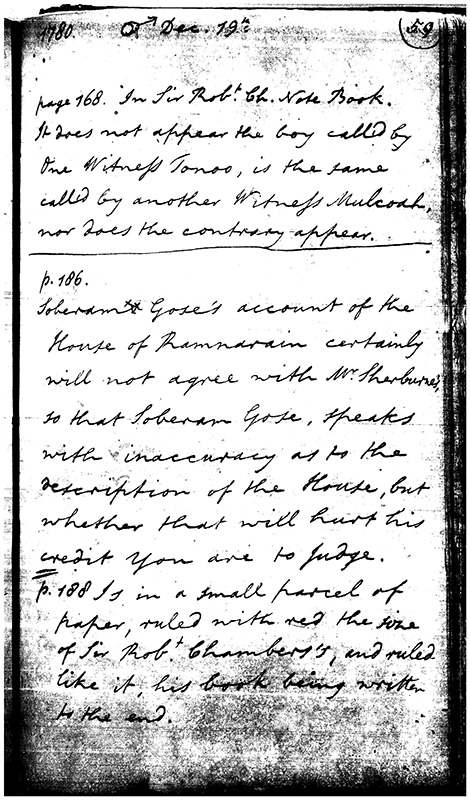 1780. ♂ Dec. 19th 59
page 168. In Sir Robt. Ch. Note Book.
It does not appear the boy called by
One Witness Tonoo, is the same
called by another Witness Mulcoah,
nor does the contrary appear.
p. 186.
Soberam Gose's account of the
House of Ramnarain certainly
will not agree with Mr. Sherburne's,
so that Soberam Gose, speaks
with inaccuracy as to the
description of the House, but
whether that will hurt his
credit You are to Judge.
p. 188 Is in a small parcel of
paper, ruled with red the size
of Sir Robt. Chambers's, and ruled
like it, his book being written
to the end.